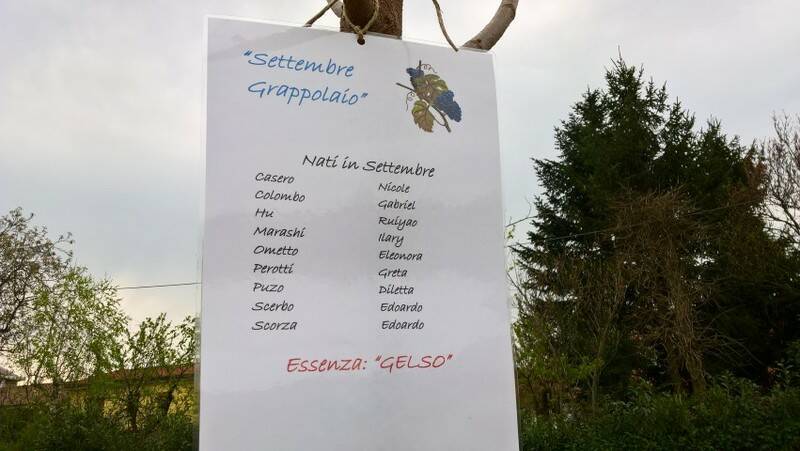 "Settembre
Grappolaio"
Nati in Settembre
Casero Nicole
Colombo Gabriel
Hu Ruiyao
Marashi Ilary
Ometto Eleonora
Perotti Greta
Puzo Diletta
Scerbo Edoardo
Scorza Edoardo
Essenza: "GELSO"